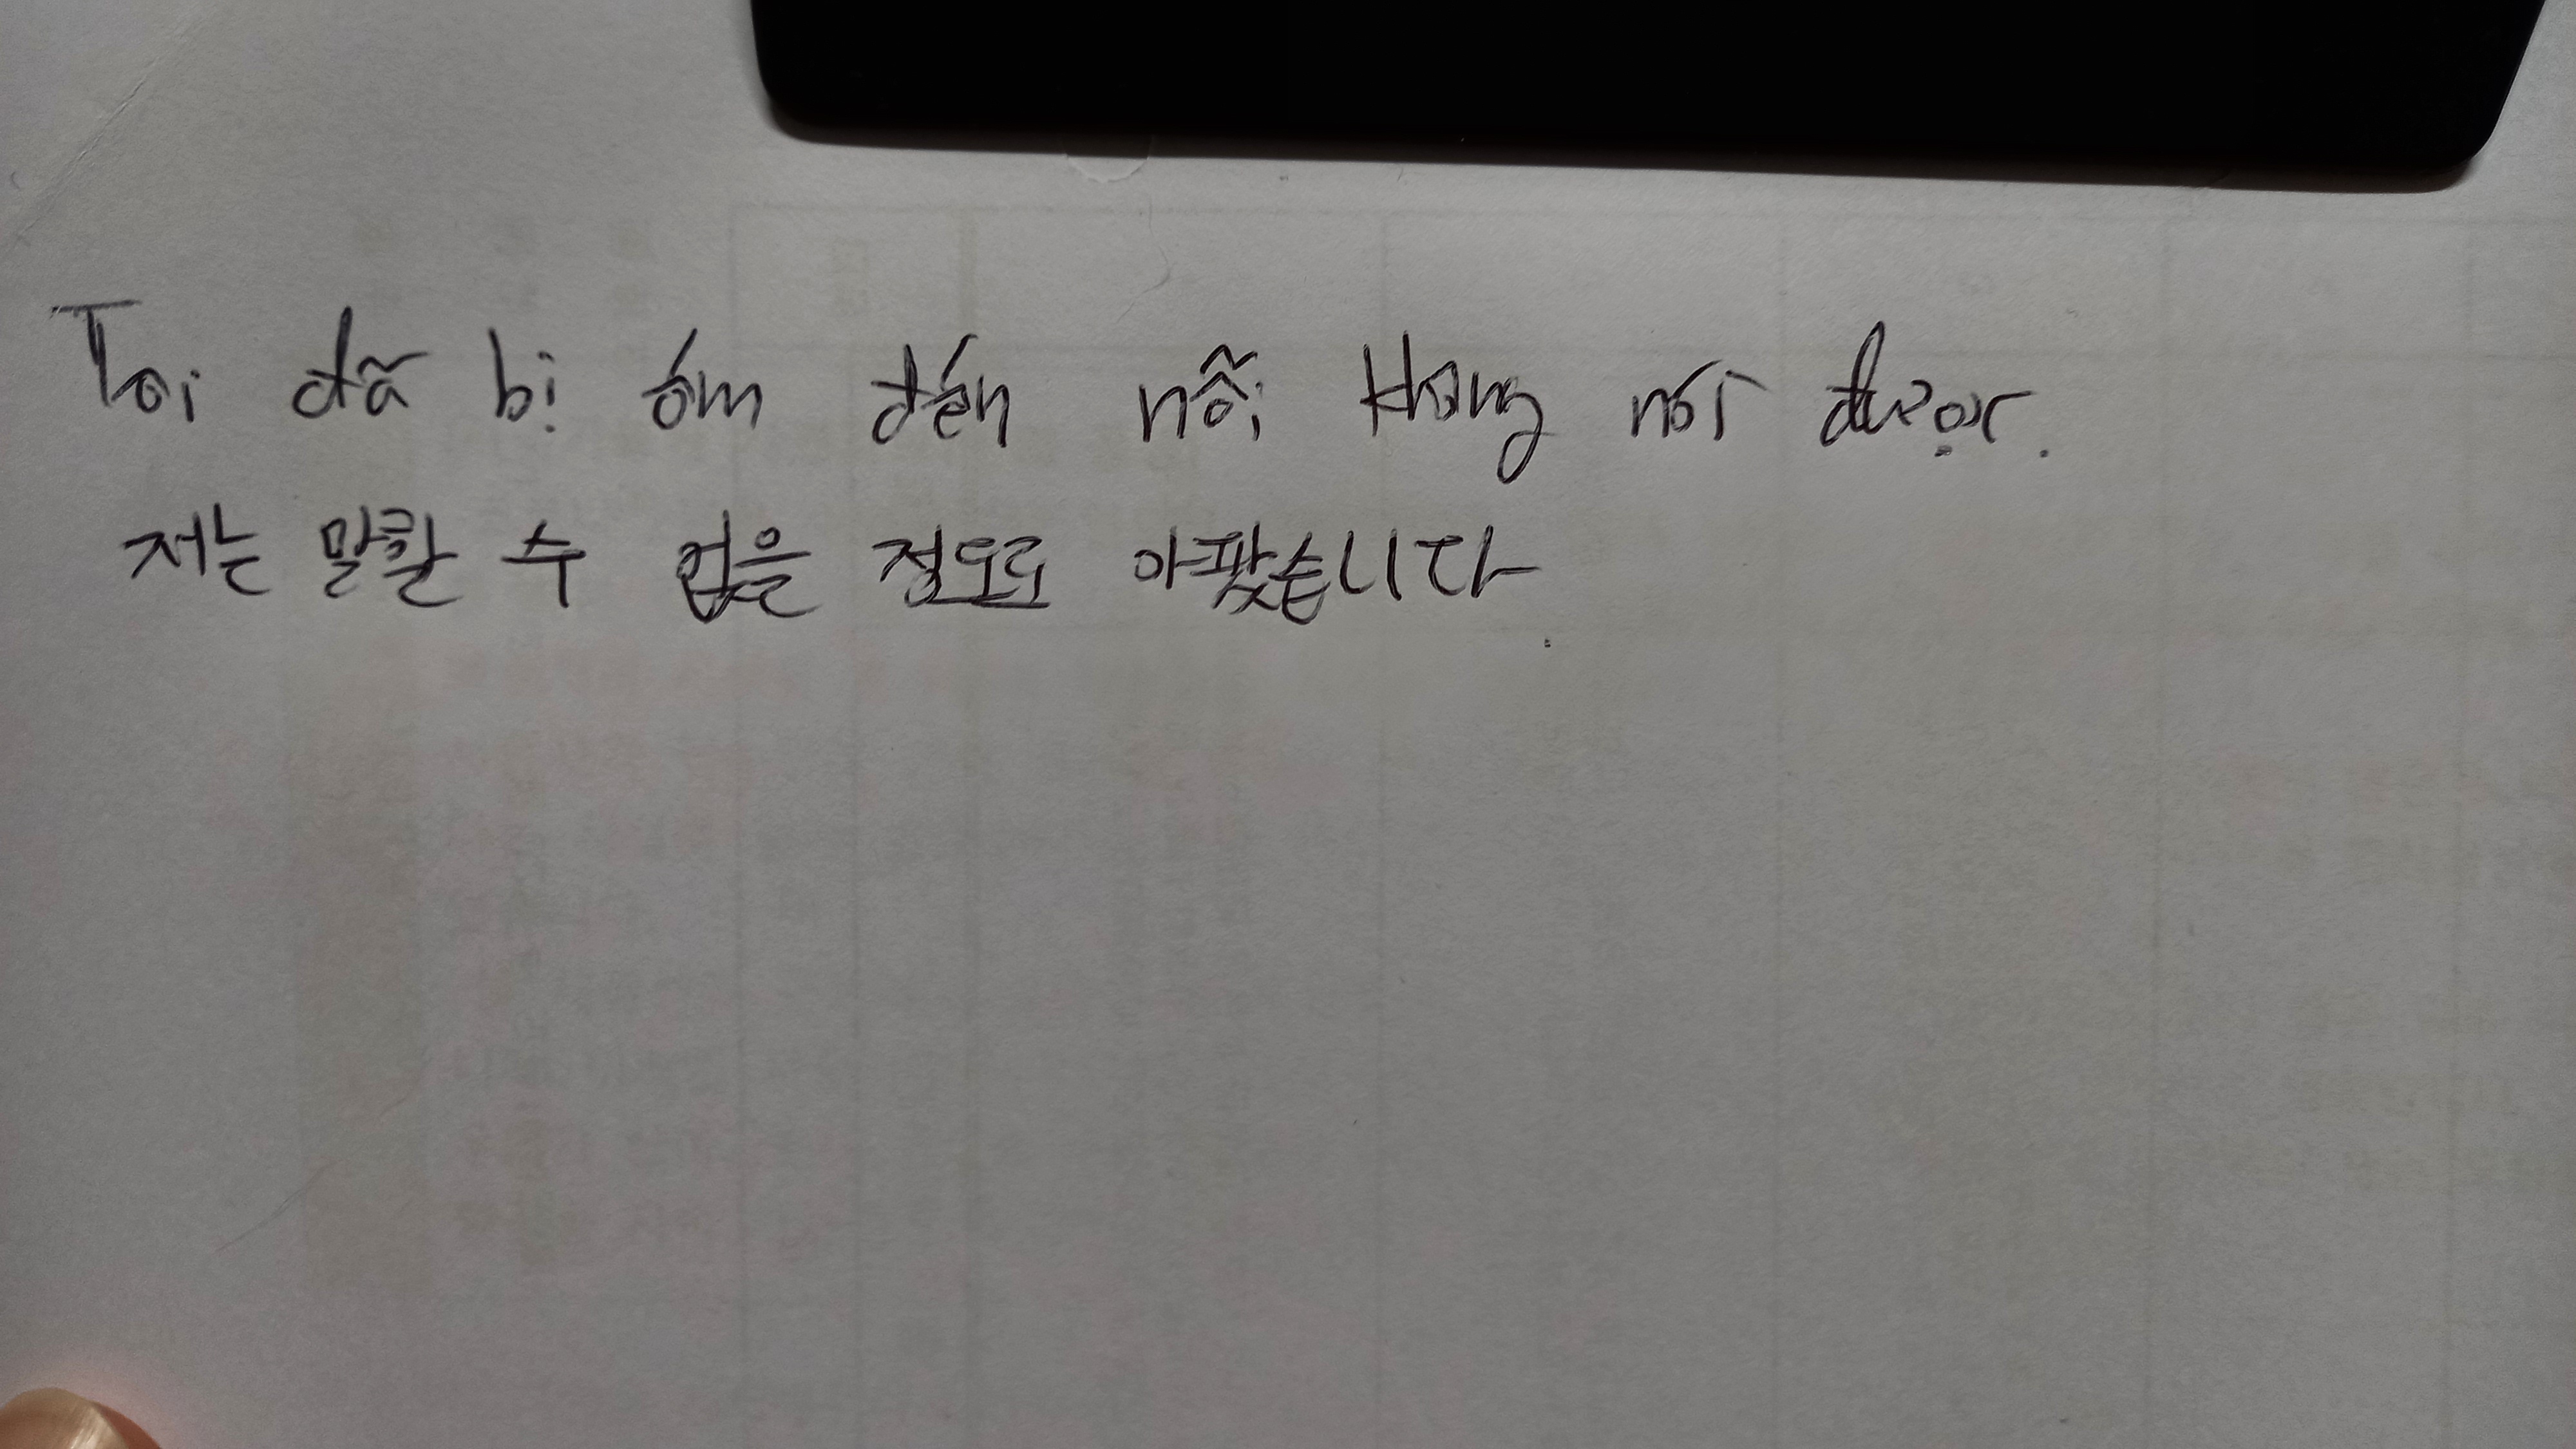 Toi đã bị óm đến nỗi không nói được.
저는 말할 수 없을 정도로 아팠습니다.